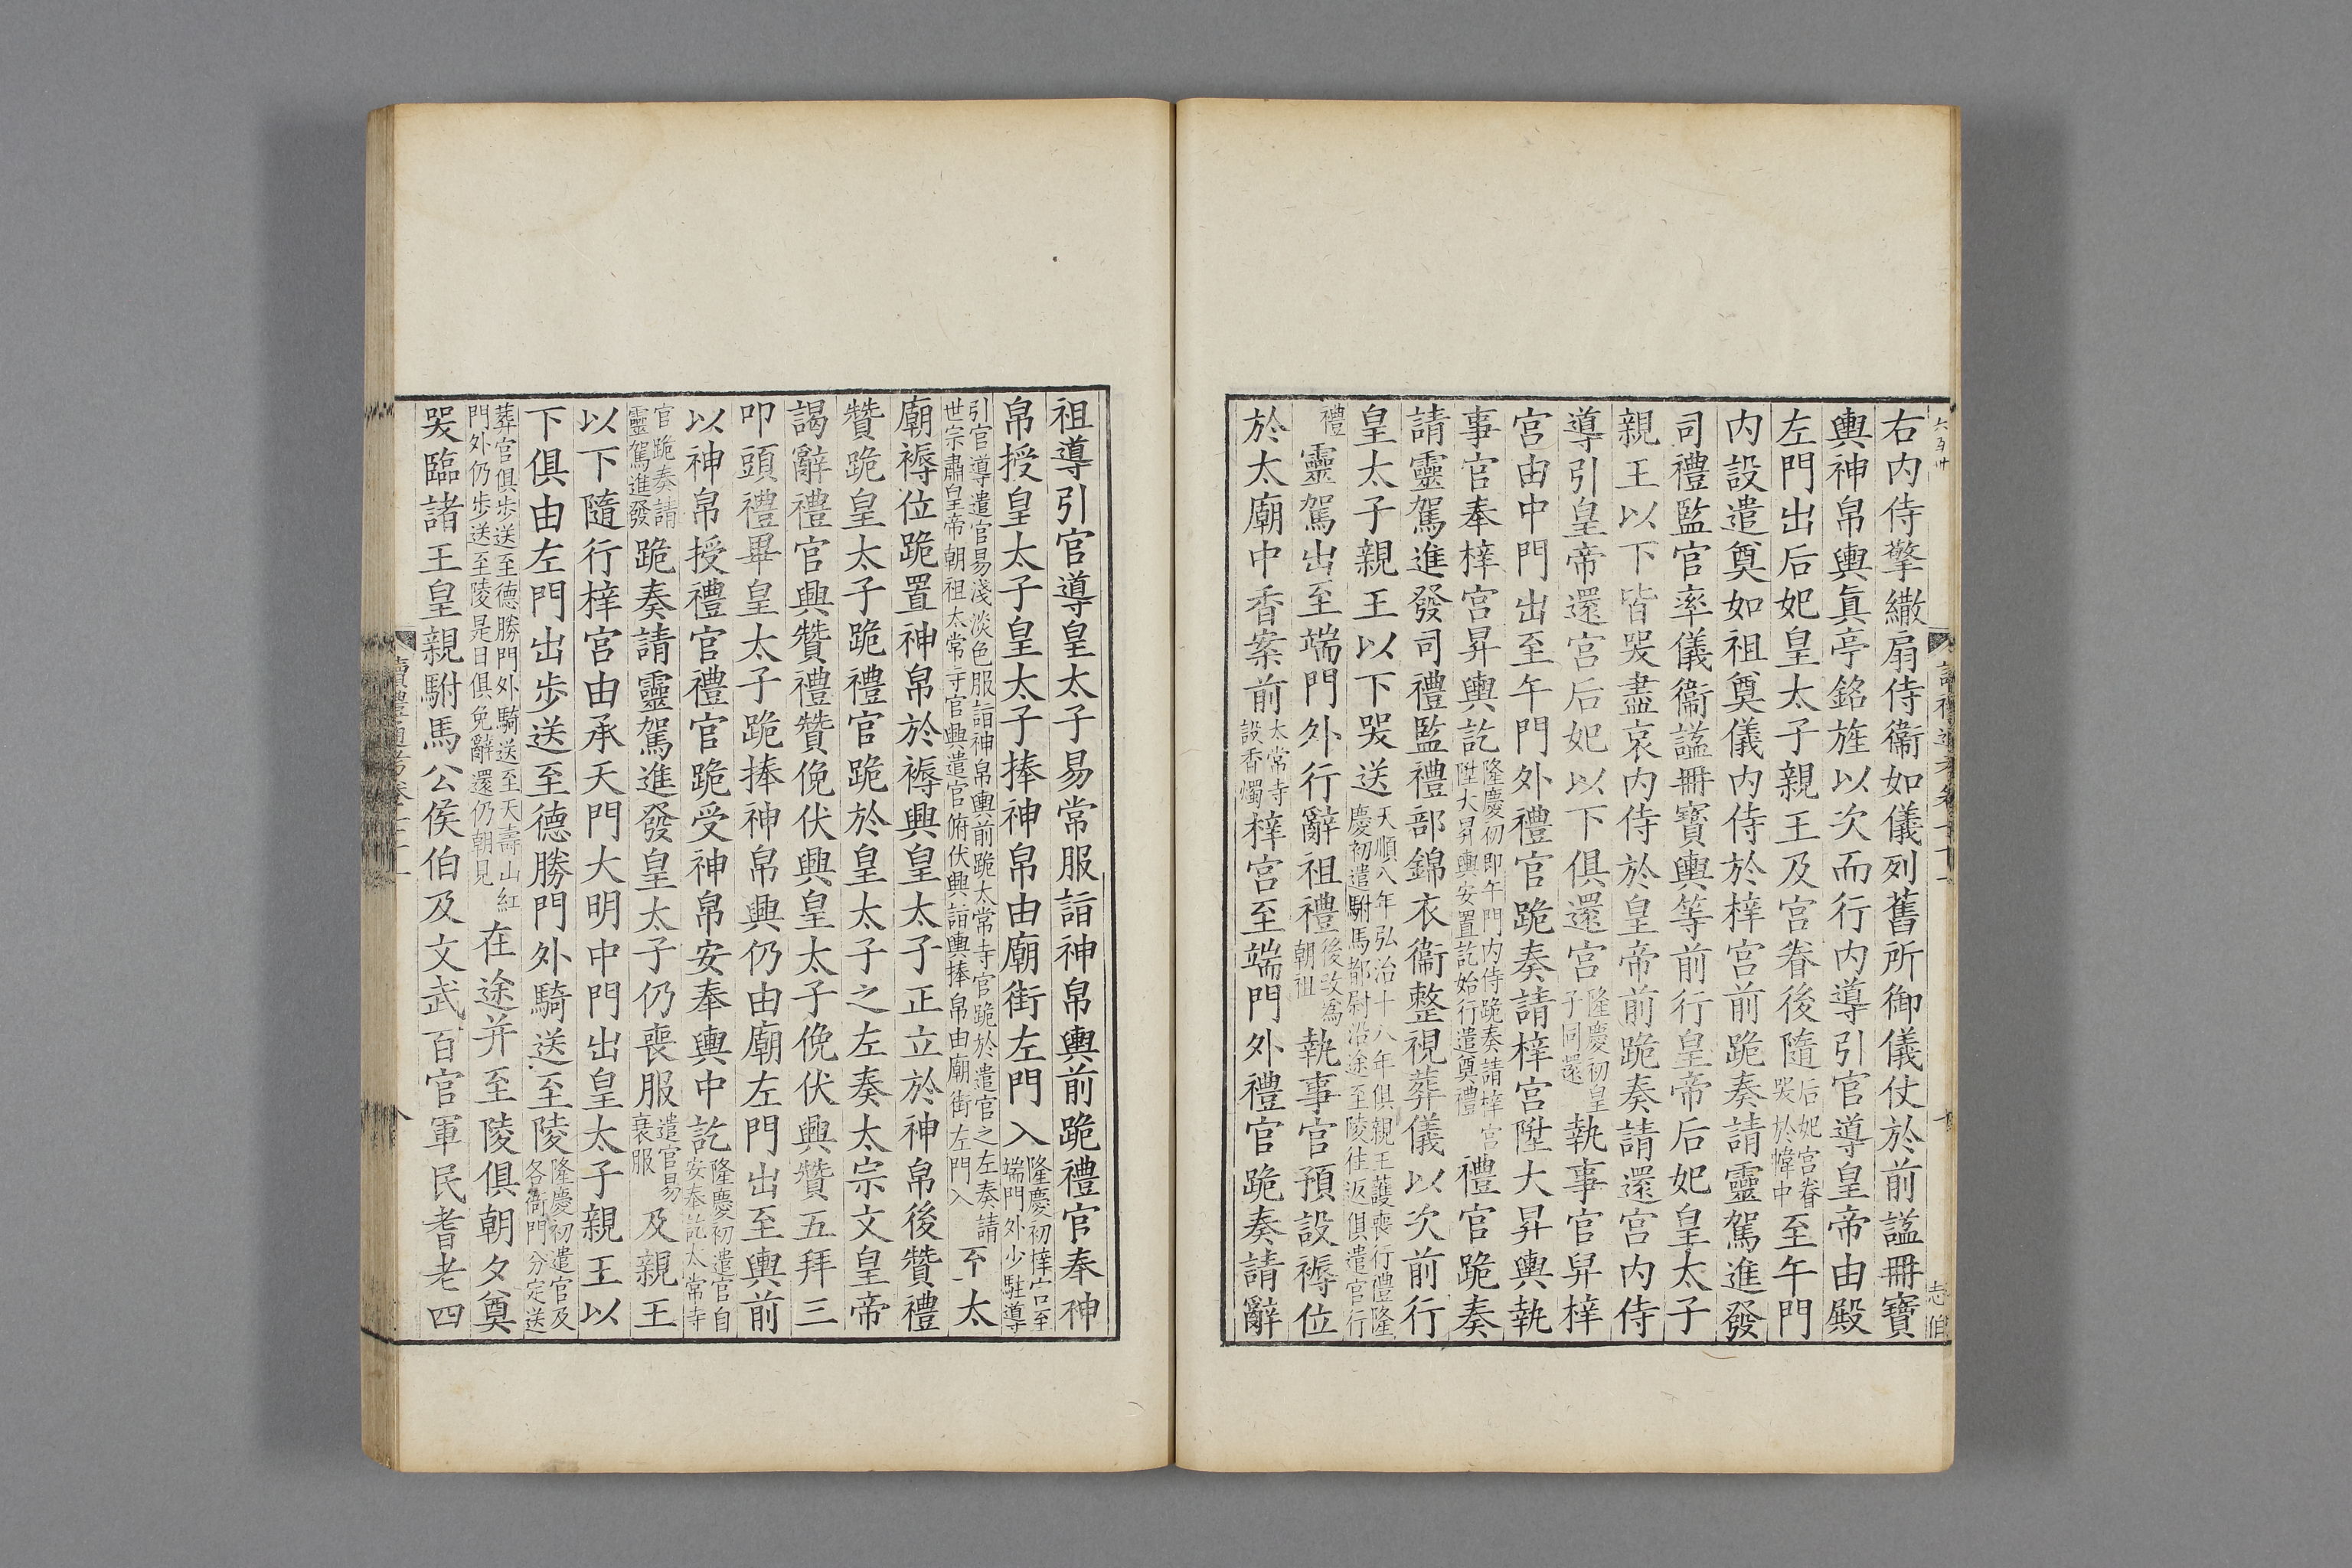 右内侍擎繖扇侍衞如儀列舊所御儀仗於前諡冊寶
輿神帛輿眞亭銘旌以次而行内導引官導皇帝由殿
左門出后妃皇太子親王及宮眷後隨后妃宮眷哭於幃中至午門
内設遣奠如祖奠儀内侍於梓宮前跪奏請靈駕進發
司禮監官率儀衞諡冊寶輿等前行皇帝后妃皇太子
親王以下皆哭盡哀内侍於皇帝前跪奏請還宮内侍
導引皇帝還宮后妃以下俱還宮隆慶初皇子同還執事官舁梓
宮由中門出至午門外禮官跪奏請梓宮陞大昇輿執
事官奉梓宮昇輿訖隆慶初即午門内侍跪奏請梓宮陞大昇輿安置訖始行遣奠禮禮官跪奏
請靈駕進發司禮監禮部錦衣衞整視葬儀以次前行
皇太子親王以下哭送天順八年弘治十八年俱親王護喪行禮隆慶初遣駙馬都尉沿途至陵往返俱遣官行
禮靈駕出至端門外行辭祖禮後改爲朝祖執事官預設褥位
於太廟中香案前太常寺設香燭梓宮至端門外禮官跪奏請辭
祖導引官導皇太子易常服詣神帛輿前跪禮官奉神
帛授皇太子皇太子捧神帛由廟街左門入隆慶初梓宮至端門外少駐導
引官導遣官易淺淡色服詣神帛輿前跪太常寺官跪於遣官之左奏請世宗肅皇帝朝祖太常寺官興遣官俯伏興詣輿捧帛由廟街左門入至太
廟褥位跪置神帛於褥興皇太子正立於神帛後贊禮
贊跪皇太子跪禮官跪於皇太子之左奏太宗文皇帝
謁辭禮官興贊禮贊俛伏興皇太子俛伏興贊五拜三
叩頭禮畢皇太子跪捧神帛興仍由廟左門出至輿前
以神帛授禮官禮官跪受神帛安奉輿中訖隆慶初遣官自安奉訖太常寺
官跪奏請靈駕進發跪奏請靈駕進發皇太子仍喪服遣官易衰服及親王
以下隨行梓宮由承天門大明中門出皇太子親王以
下俱由左門出步送至德勝門外騎送至陵隆慶初遣官及各衙門分定送
葬官俱步送至德勝門外騎送至天壽山紅門外仍步送至陵是日俱免辭還仍朝見在途并至陵俱朝夕奠
哭臨諸王皇親駙馬公侯伯及文武百官軍民耆老四